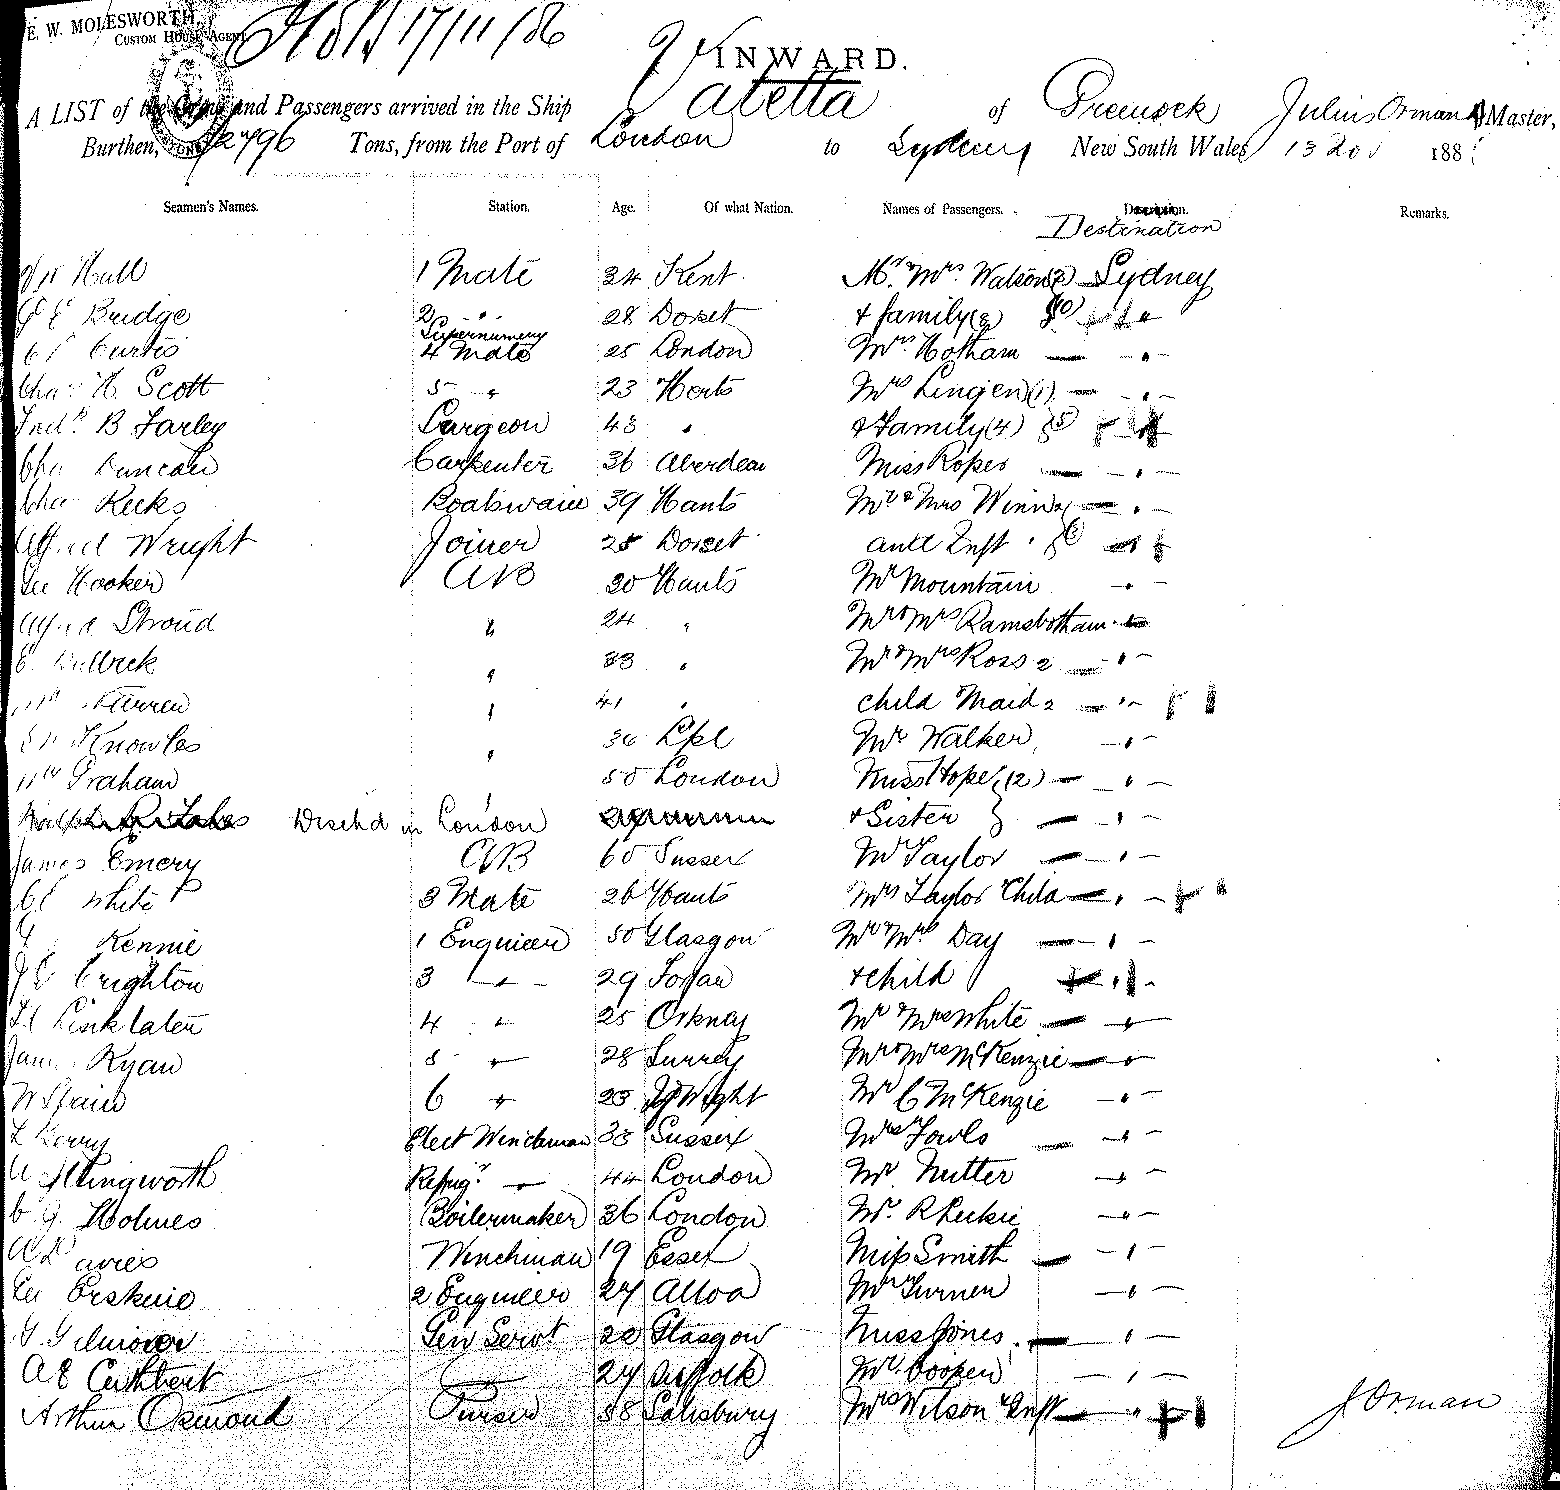 E. W. MOLESWORTH,
CUSTOM HOUSE AGENT
17/11/86
INWARD.
A LIST of the Crew and Passengers arrived in the Ship Valetta of Greenock Julius Orman Master,
Burthen, Tons, from the Port of London to Sydney New South Wales 13 Nov 188
Seamen's Names. Station. Age. Of what Nation. Names of Passengers. Description. Remarks.
Destination
Hall 1 Mate 34 Kent Mr & Mrs Watson (2) Sydney
Bridge 2 " 28 Dorset + family (8) (10)
Supernumery
Curtis 4 Mate 25 London Mrs Hotham — " —
Chas H. Scott 5 " 23 Herts Mrs Lingen (1) — " —
Fredk B Farley Surgeon 43 " & family (4) 5
Chas Duncan Carpenter 36 Aberdeen Miss Roper — " —
Chas Keeks Boatswain 39 Hants Mr & Mrs Winn 2 — " —
Alfred Wright Joiner 25 Dorset and Inft
Geo Hooker AB 30 Hants Mr Mountain " —
Alfred Stroud " 24 " Mr & Mrs Ramsbotham
" 33 " Mr & Mrs Ross 2 — " —
" 41 " child Maid 2 — " —
Knowles " 36 Lpl Mr Walker — " —
Wm Graham 50 London Miss Hope (2) — " —
Disch'd in London + Sister — " —
James Emery AB 60 Sussex Mr Taylor — " —
White 3 Mate 26 Hants Mrs Taylor Child — " —
Rennie 1 Engineer 50 Glasgow Mr Mrs Day — " —
Crighton 3 — " — 29 + child
Linklater 4 " 25 Orkney Mr Mrs White — " —
James Ryan 5 " 28 Surrey Mr & Mrs McKenzie — " —
W Spain 6 " 23 Wight Mr C McKenzie — " —
Kerry Elect Winchman 38 Sussex Mrs Fowls — " —
Illingworth Refrig. — " — 44 London Mr Nutter — " —
C. G. Holmes Boilermaker 36 London Mr. R Leckie — " —
Davies Winchman 19 Essex Miss Smith — " —
Geo Erskine 2 Engineer 27 Alloa Mr Turner — " —
G Gilmour Gen Servt 22 Glasgow Miss Jones — " —
A E Cuthbert 27 Suffolk Mr Cooper — " —
Arthur Osmond Purser 38 Salisbury Mrs Wilson & Inft
J Orman